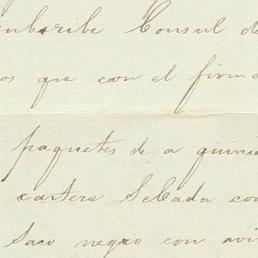 Consul de
os que con el firma
paquetes de a quinie
cartera Sellada con
Saco negro con avi